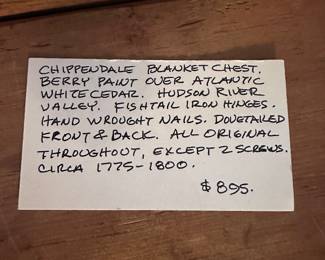 CHIPPENDALE BLANKET CHEST.
BERRY PAINT OVER ATLANTIC
WHITE CEDAR. HUDSON RIVER
VALLEY. FISHTAIL IRON HINGES.
HAND WROUGHT NAILS. DOVETAILED
FRONT & BACK. ALL ORIGINAL
THROUGHOUT, EXCEPT 2 SCREWS.
CIRCA 1775-1800.
$895.